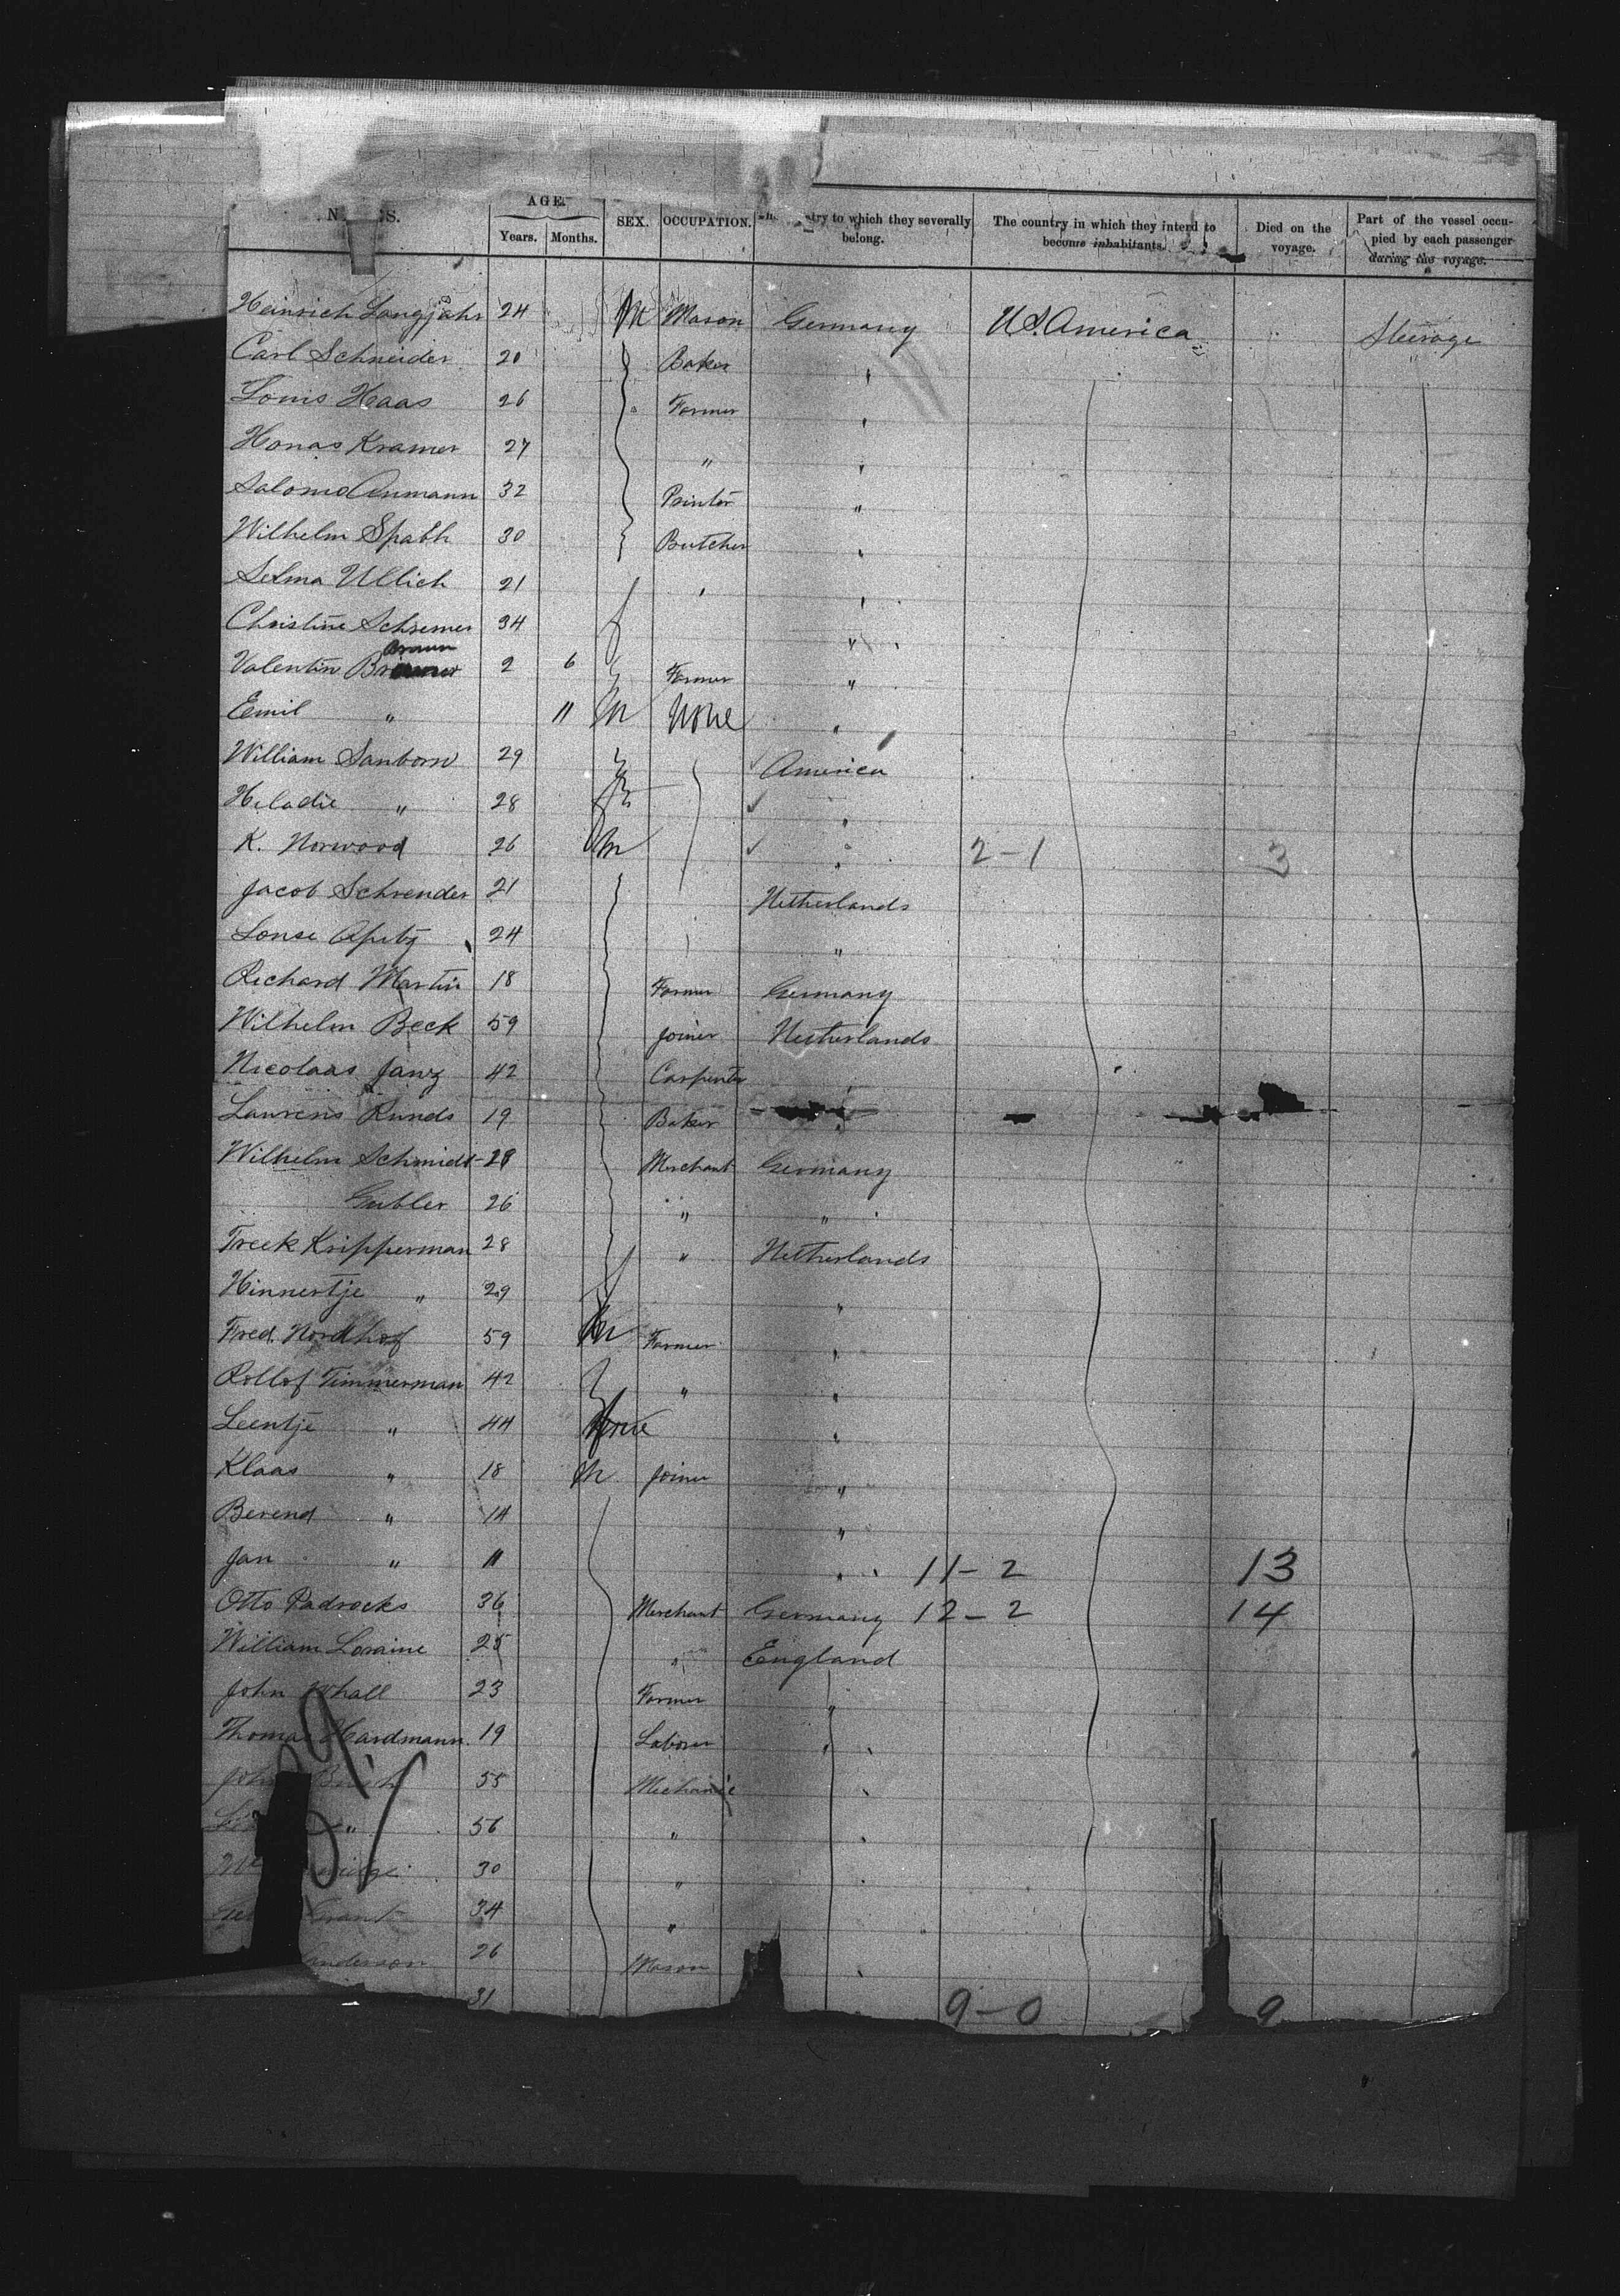 AGE.
SEX. OCCUPATION. to which they severally belong. The country in which they intend to become inhabitants. Died on the voyage. Part of the vessel occupied by each passenger during the voyage.
Years. Months.
Heinrich Langjahr 24 M Mason Germany U.S. America Steerage
Carl Schneider 20 Baker "
Louis Haas 26 Farmer "
Honas Kramer 27 " "
Salomo Aumann 32 Printer "
Wilhelm Spath 30 Butcher "
Selma Ullich 21 " "
Christine Schremer 34 f "
Braun
Valentin 2 6 Farmer "
Emil " 11 M None "
William Sanborn 29 America
Heladie " 28 "
K. Norwood 26 M " 2-1 3
Jacob Schrender 21 Netherlands
Lonse Apitz 24 "
Richard Martin 18 Farmer Germany
Wilhelm Beck 59 Joiner Netherlands
Nicolaas Janz 42 Carpenter "
Laurens Runds 19 Baker "
Wilhelm Schmidt 28 Merchant Germany
Gubler 26 " "
Treek Kripperman 28 " Netherlands
Hinnertje " 29 f "
Fred. Nordhof 59 M Farmer "
Rollof Timmerman 42 " "
Leentje " 44 "
Klaas " 18 M Joiner "
Berend " 14 "
Jan " 11 " 11-2 13
Otto Padrocks 36 Merchant Germany 12-2 14
William Loraine 25 " England
John Whall 23 Farmer "
Thomas Hardmann 19 Laborer "
55 Mechanic "
" 56 " "
30 "
Grant 34 "
Anderson 26 Mason "
31 9-0 9